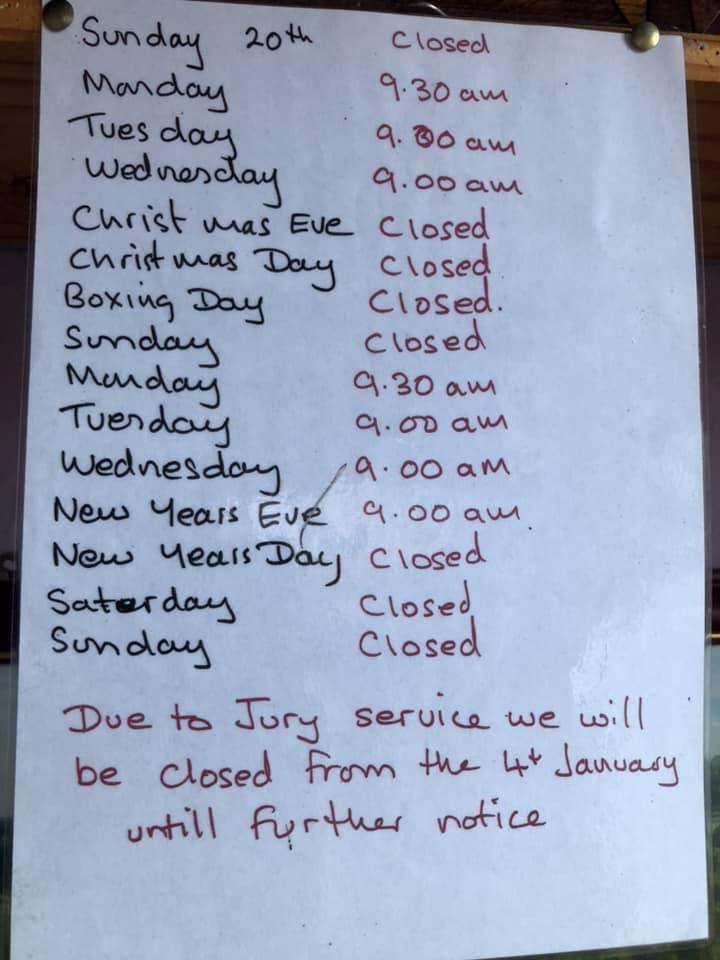 Sunday 20th Closed
Monday 9.30 am
Tuesday 9.00 am
Wednesday 9.00 am
Christmas Eve Closed
Christmas Day Closed
Boxing Day Closed.
Sunday Closed
Monday 9.30 am
Tuesday 9.00 am
Wednesday 9.00 am
New Years Eve 9.00 am
New Years Day Closed
Saterday Closed
Sunday Closed
Due to Jury service we will
be closed from the 4t January
untill further notice